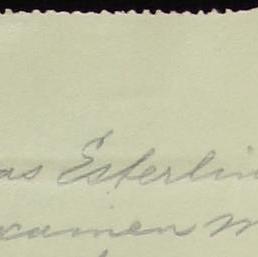 as Esterlin
xamen m